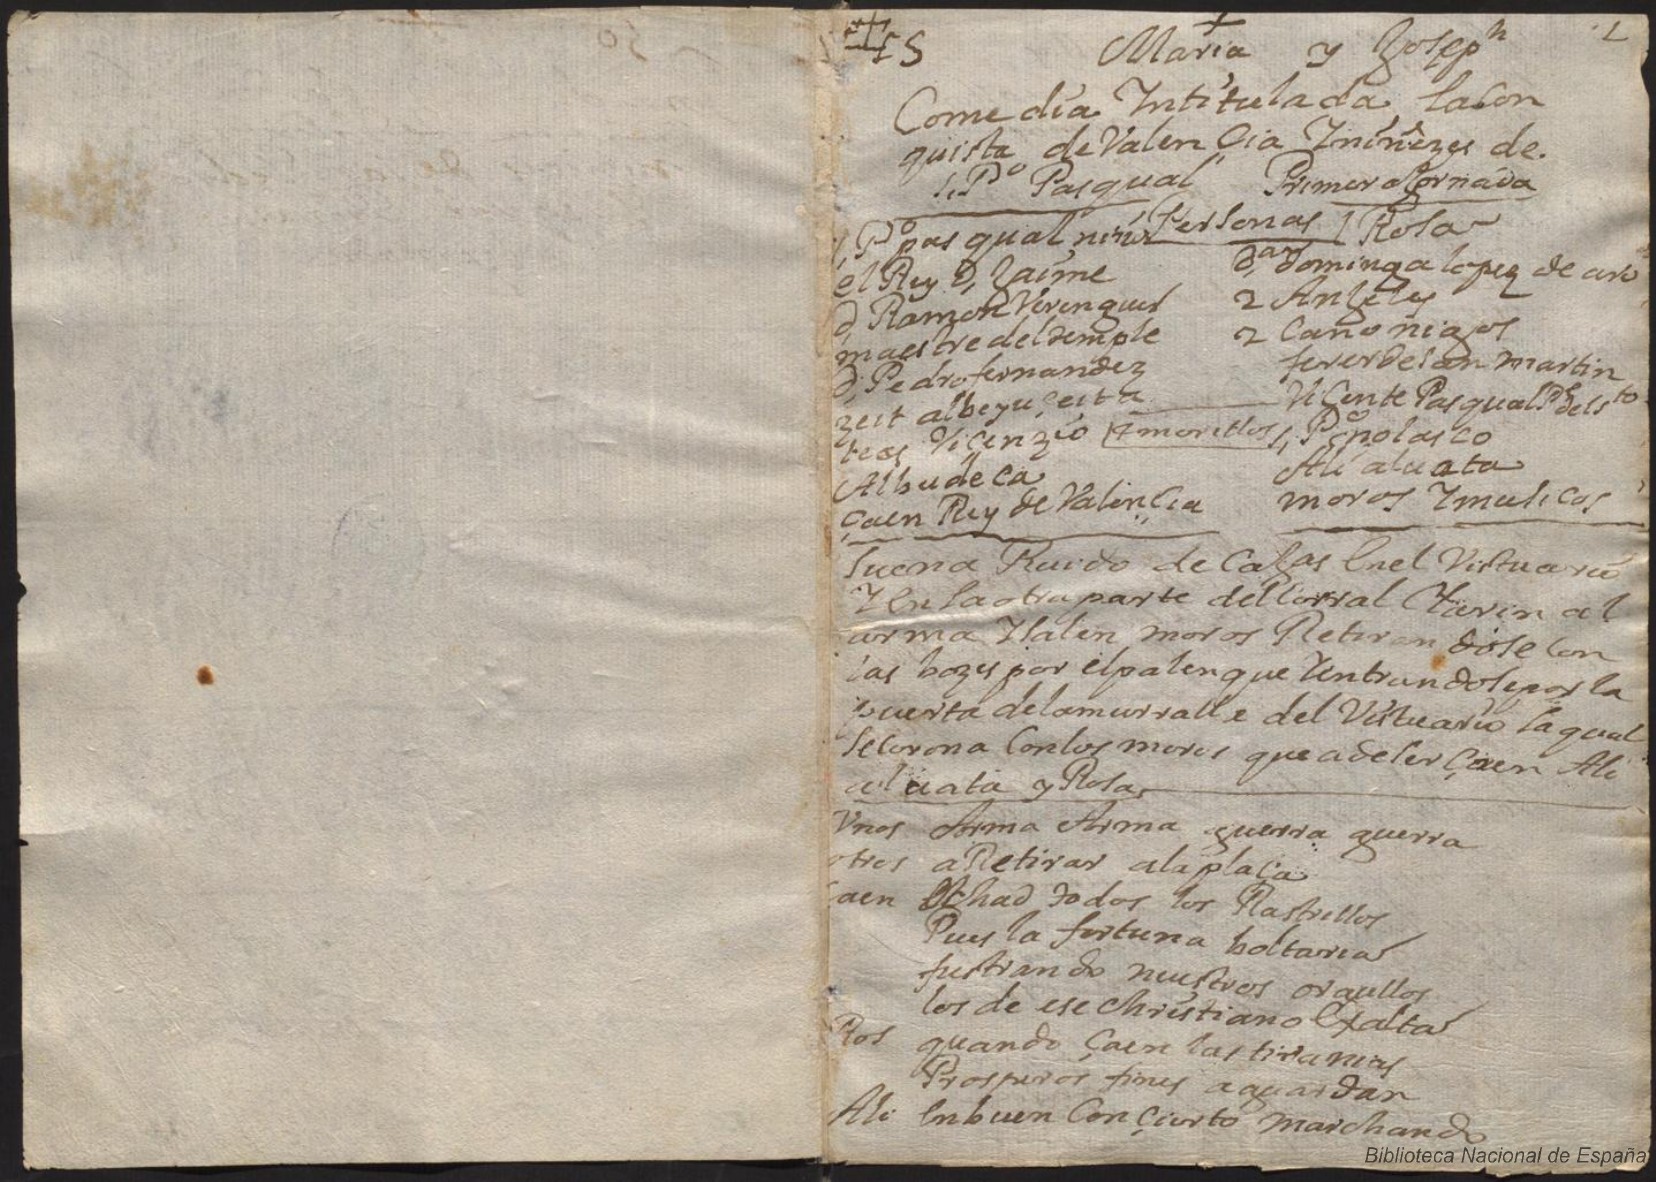 JHS María y Joseph 1
Comedia Intitulada la Con
quista de Valençia Y niñezes de
S. Po Pasqual Primera Jornada
S. Po pasqual niño Personas Rosa
el Rey D, Jaime
D, Ramon Verenguel
maestre del temple
D, Pedro fernandez
zeit albeyuçeita
Viçenzio 4 morillos
Albudeca
Çaen Rey de Valençia
Da, dominga lopez de aro
2 Angeles
2 Canonigos
ferer de san martin
Viçente Pasqual Pe del sto
S, Po nolasco
Ali aluata
moros Y musicos
Suena Ruido de Cajas En el Vistuario
Y En la otra parte del Corral Clarin al
arma Y salen moros Retirandose con
las bozes por el palenque Y entrandose por la
puerta de la muralle del Vistuario la qual
se Corona Con los moros que a de ser Çaen Ali
aluata y Rosa
Vnos Arma Arma guerra guerra
otros a Retirar a la plaça
Çaen Echad todos los Rastrillos
Pues la fortuna boltaria
fustrando nuestros orgullos
los de ese Christiano Exalta
Ros quando Çaen las tiranias
Prosperos fines aguardan
Ali En buen Conçierto marchando
Biblioteca Nacional de España